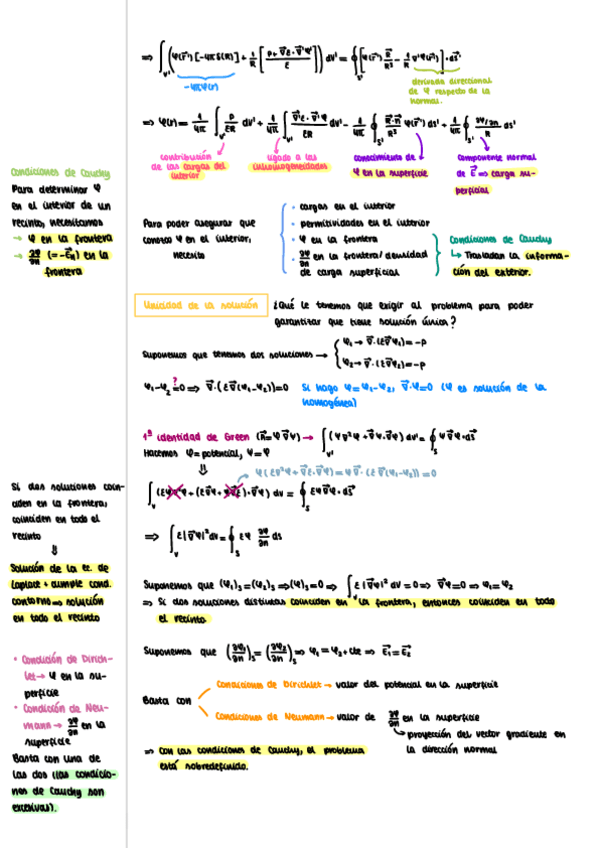 ⟹ ∫_V' (φ(r⃗')[-4πδ(R)] + 1/R [(ρ + ∇⃗ε·∇⃗'φ')/ε]) dV' = ∮_S' [φ(r⃗') R⃗/R³ - 1/R ∇'φ(r⃗')]·ds⃗'
-4πφ(r)
derivada direccional
de φ respecto de la
normal.
⟹ φ(r) = 1/4π ∫_V' ρ/εR dV' + 1/4π ∫_V' ∇⃗'ε·∇⃗'φ/εR dV' - 1/4π ∮_S' R⃗·n⃗/R³ φ(r⃗') ds' + 1/4π ∮_S' ∂φ/∂n/R ds'
contribución
de las cargas del
interior
ligado a las
inhomogeneidades
conocimiento de
φ en la superficie
componente normal
de E⃗ ⟹ carga su-
perficial
Condiciones de Cauchy
Para determinar φ
en el interior de un
recinto, necesitamos
→ φ en la frontera
→ ∂φ/∂n (= -E⃗n) en la
frontera
Para poder asegurar que
conozco φ en el interior,
necesito
· cargas en el interior
· permitividades en el interior
· φ en la frontera
· ∂φ/∂n en la frontera/densidad
de carga superficial
Condiciones de Cauchy
↳ Trasladan la informa-
ción del exterior.
Unicidad de la solución
¿Qué le tenemos que exigir al problema para poder
garantizar que tiene solución única?
Suponemos que tenemos dos soluciones →
φ₁ → ∇⃗·(ε∇⃗φ₁) = -ρ
φ₂ → ∇⃗·(ε∇⃗φ₂) = -ρ
φ₁-φ₂ =? 0 ⟹ ∇⃗·(ε∇⃗(φ₁-φ₂)) = 0 Si hago φ = φ₁-φ₂, ∇⃗·φ = 0 (φ es solución de la
homogénea)
1ª identidad de Green (A⃗ = φ∇⃗ψ) → ∫_V' (ψ∇²φ + ∇⃗ψ·∇⃗φ) dV' = ∮_S ψ∇⃗φ·ds⃗
Hacemos φ = potencial, ψ = φ
⇓
φ(ε∇²φ + ∇⃗ε·∇⃗φ) = φ∇⃗·(ε∇⃗(φ₁-φ₂)) = 0
∫_V (εφ∇²φ + (ε∇⃗φ + φ∇⃗ε)·∇⃗φ) dV = ∮_S εφ∇⃗φ·ds⃗
Si dos soluciones coin-
ciden en la frontera,
coinciden en todo el
recinto
⇓
Solución de la ec. de
Laplace + cumple cond.
contorno ⟹ solución
en todo el recinto
⟹ ∫_V ε|∇⃗φ|² dV = ∮_S εφ ∂φ/∂n ds
Suponemos que (φ₁)s = (φ₂)s ⟹ (φ)s = 0 ⟹ ∫ ε|∇⃗φ|² dV = 0 ⟹ ∇⃗φ = 0 ⟹ φ₁ = φ₂
⟹ Si dos soluciones distintas coinciden en la frontera, entonces coinciden en todo
el recinto.
Suponemos que (∂φ₁/∂n)s = (∂φ₂/∂n)s ⟹ φ₁ = φ₂ + cte ⟹ E⃗₁ = E⃗₂
· Condición de Dirich-
let → φ en la su-
perficie
· Condición de Neu-
mann → ∂φ/∂n en la
superficie
Basta con una de
las dos (las condicio-
nes de Cauchy son
excesivas).
Basta con
Condiciones de Dirichlet → valor del potencial en la superficie
Condiciones de Neumann → valor de ∂φ/∂n en la superficie
↳ proyección del vector gradiente en
la dirección normal
⟹ Con las condiciones de Cauchy, el problema
está sobredefinido.